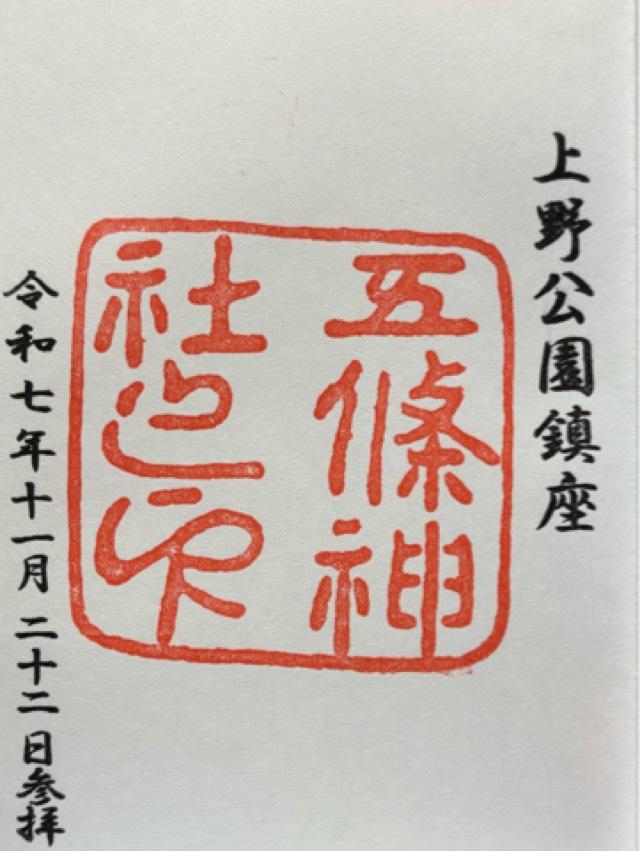 上野公園鎮座
五條神
社之印
令和七年十一月二十二日参拝